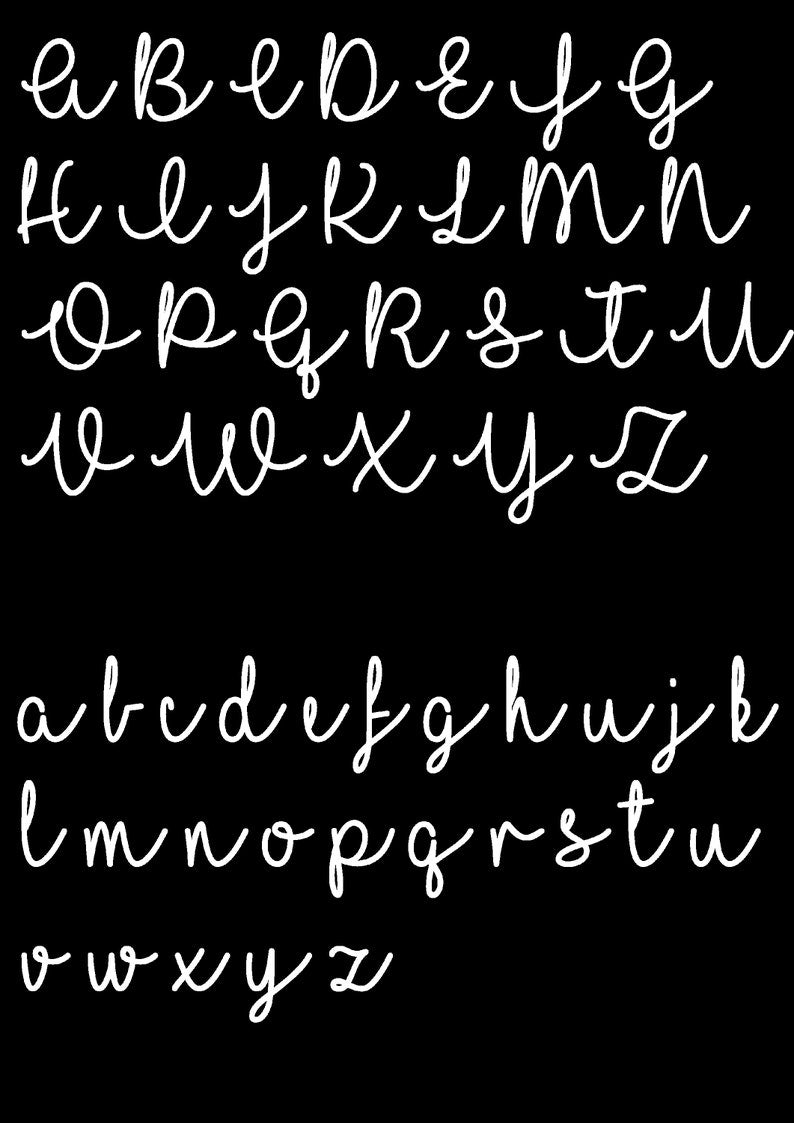 A B C D E F G
H I J K L M N
O P Q R S T U
V W X Y Z
a b c d e f g h u j k
l m n o p q r s t u
v w x y z